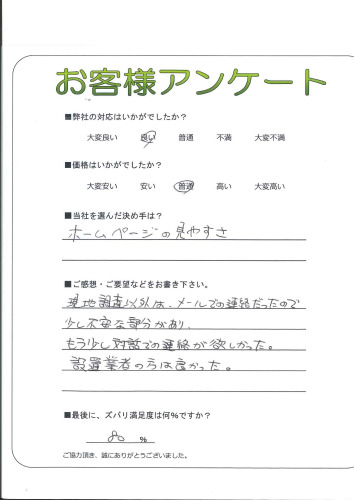 お客様アンケート
■弊社の対応はいかがでしたか？
大変良い 良い 普通 不満 大変不満
■価格はいかがでしたか？
大変安い 安い 普通 高い 大変高い
■当社を選んだ決め手は？
ホームページの見やすさ
■ご感想・ご要望などをお書き下さい。
現地調査以外は、メールでの連絡だったので
少し不安な部分があり、
もう少し対話での連絡が欲しかった。
設置業者の方は良かった。
■最後に、ズバリ満足度は何％ですか？
80 %
ご協力頂き、誠にありがとうございました。